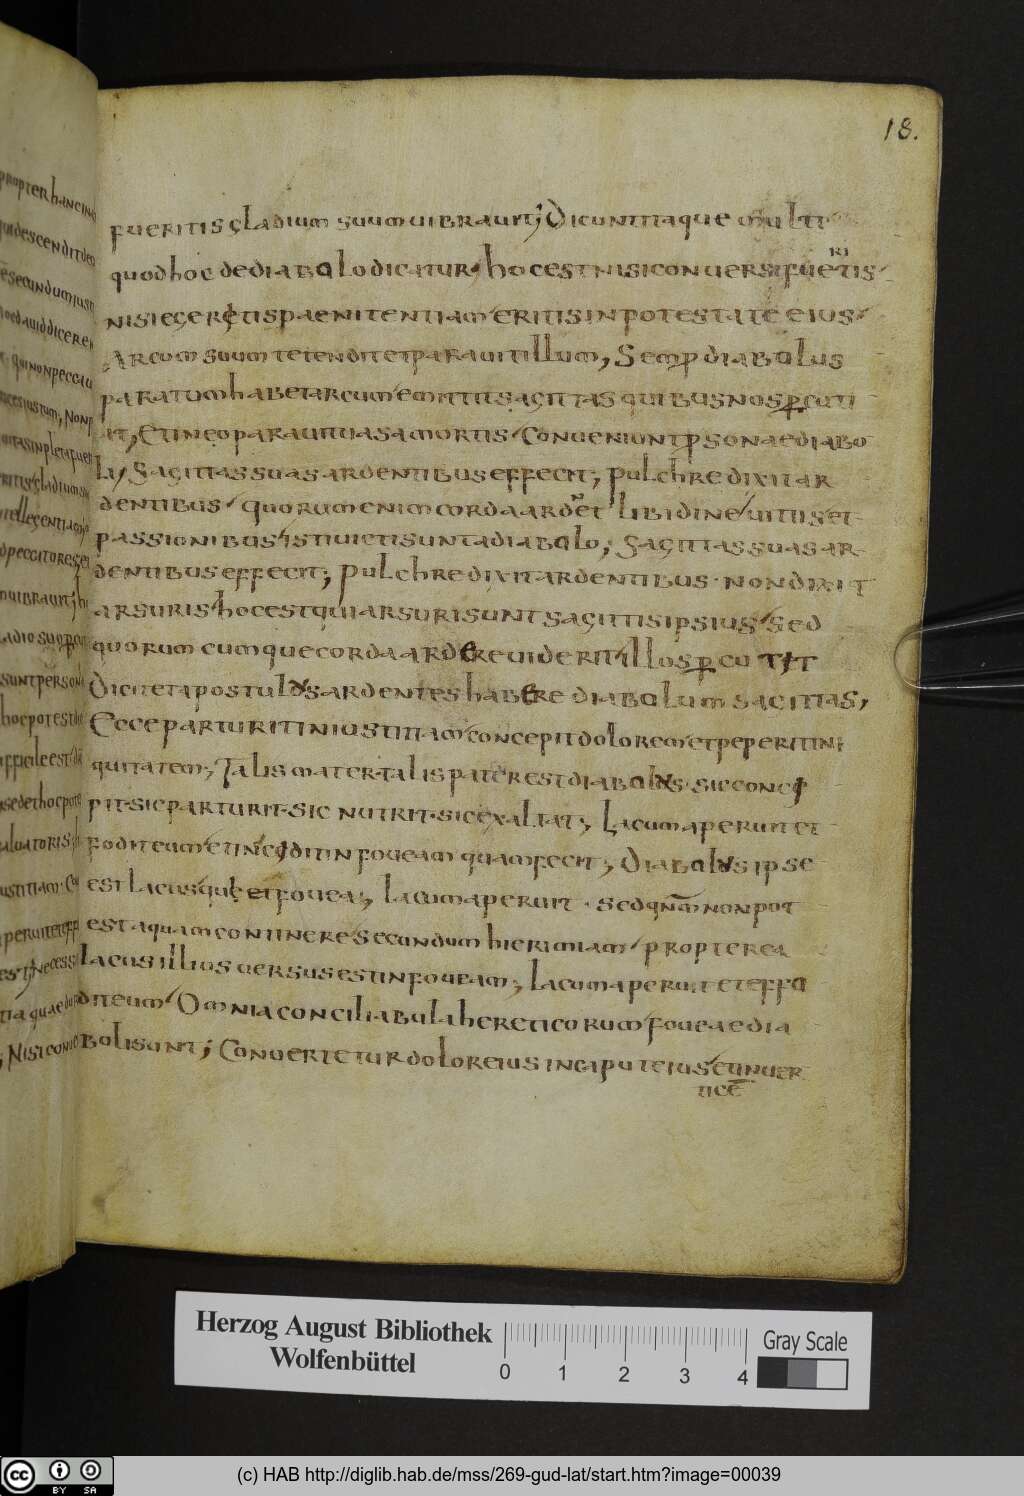 18.
fueritis gladium suum uibrauit; Dicunt itaque multi
quod hoc de diabolo dicatur, hoc est nisi conuersi fueritis
nisi egeritis paenitentiam eritis in potestate eius
Arcum suum tetendit et parauit illum, Semp diabolus
paratum habet arcum emittit sagittas quibus nos pcuti
at, Et in eo parauit uasa mortis Conueniunt psonae diabo
li, Sagittas suas ardentibus effecit; Pulchre dixit ar
dentibus quorum enim corda ardet libidine uitiis et
passionibus isti uicti sunt a diabolo; Sagittas suas ar
dentibus effecit; Pulchre dixit ardentibus · non dixit
arsuris hoc est qui arsuri sunt sagittis ipsius Sed
quorum cumque corda ardere uiderit illos pcutit
Dicit et apostulus ardentes habere diabolum sagittas,
Ecce parturit iniustitiam concepit dolorem et peperit ini
quitatem; Talis mater talis pater est diabolus · sic conce
pit · sic parturit · sic nutrit · sic exaltat; Lacum aperuit et
fodit eum et incidit in foueam quam fecit; Diabolus ipse
est lacusquę et fouea; Lacum aperuit · sed qnm non pot
est aquam continere secundum hierimiam propterea
lacus illius uersus est in foueam; Lacum aperuit et effo
dit eum Omnia conciliabula hereticorum foueae dia
boli sunt; Conuertetur dolor eius in caput eius et in uer
ticē
Herzog August Bibliothek
Wolfenbüttel
0 1 2 3 4
Gray Scale
cc BY SA
(c) HAB http://diglib.hab.de/mss/269-gud-lat/start.htm?image=00039